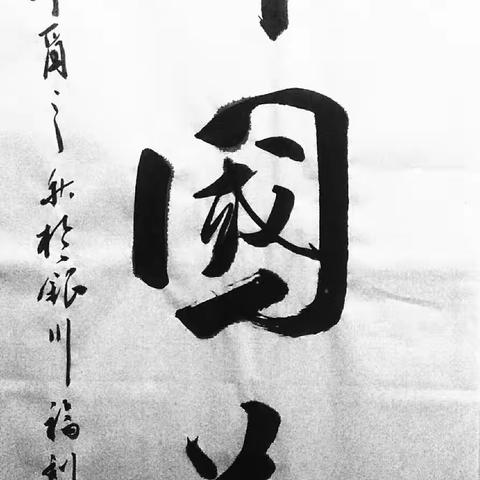 國
之秋於銀川福利